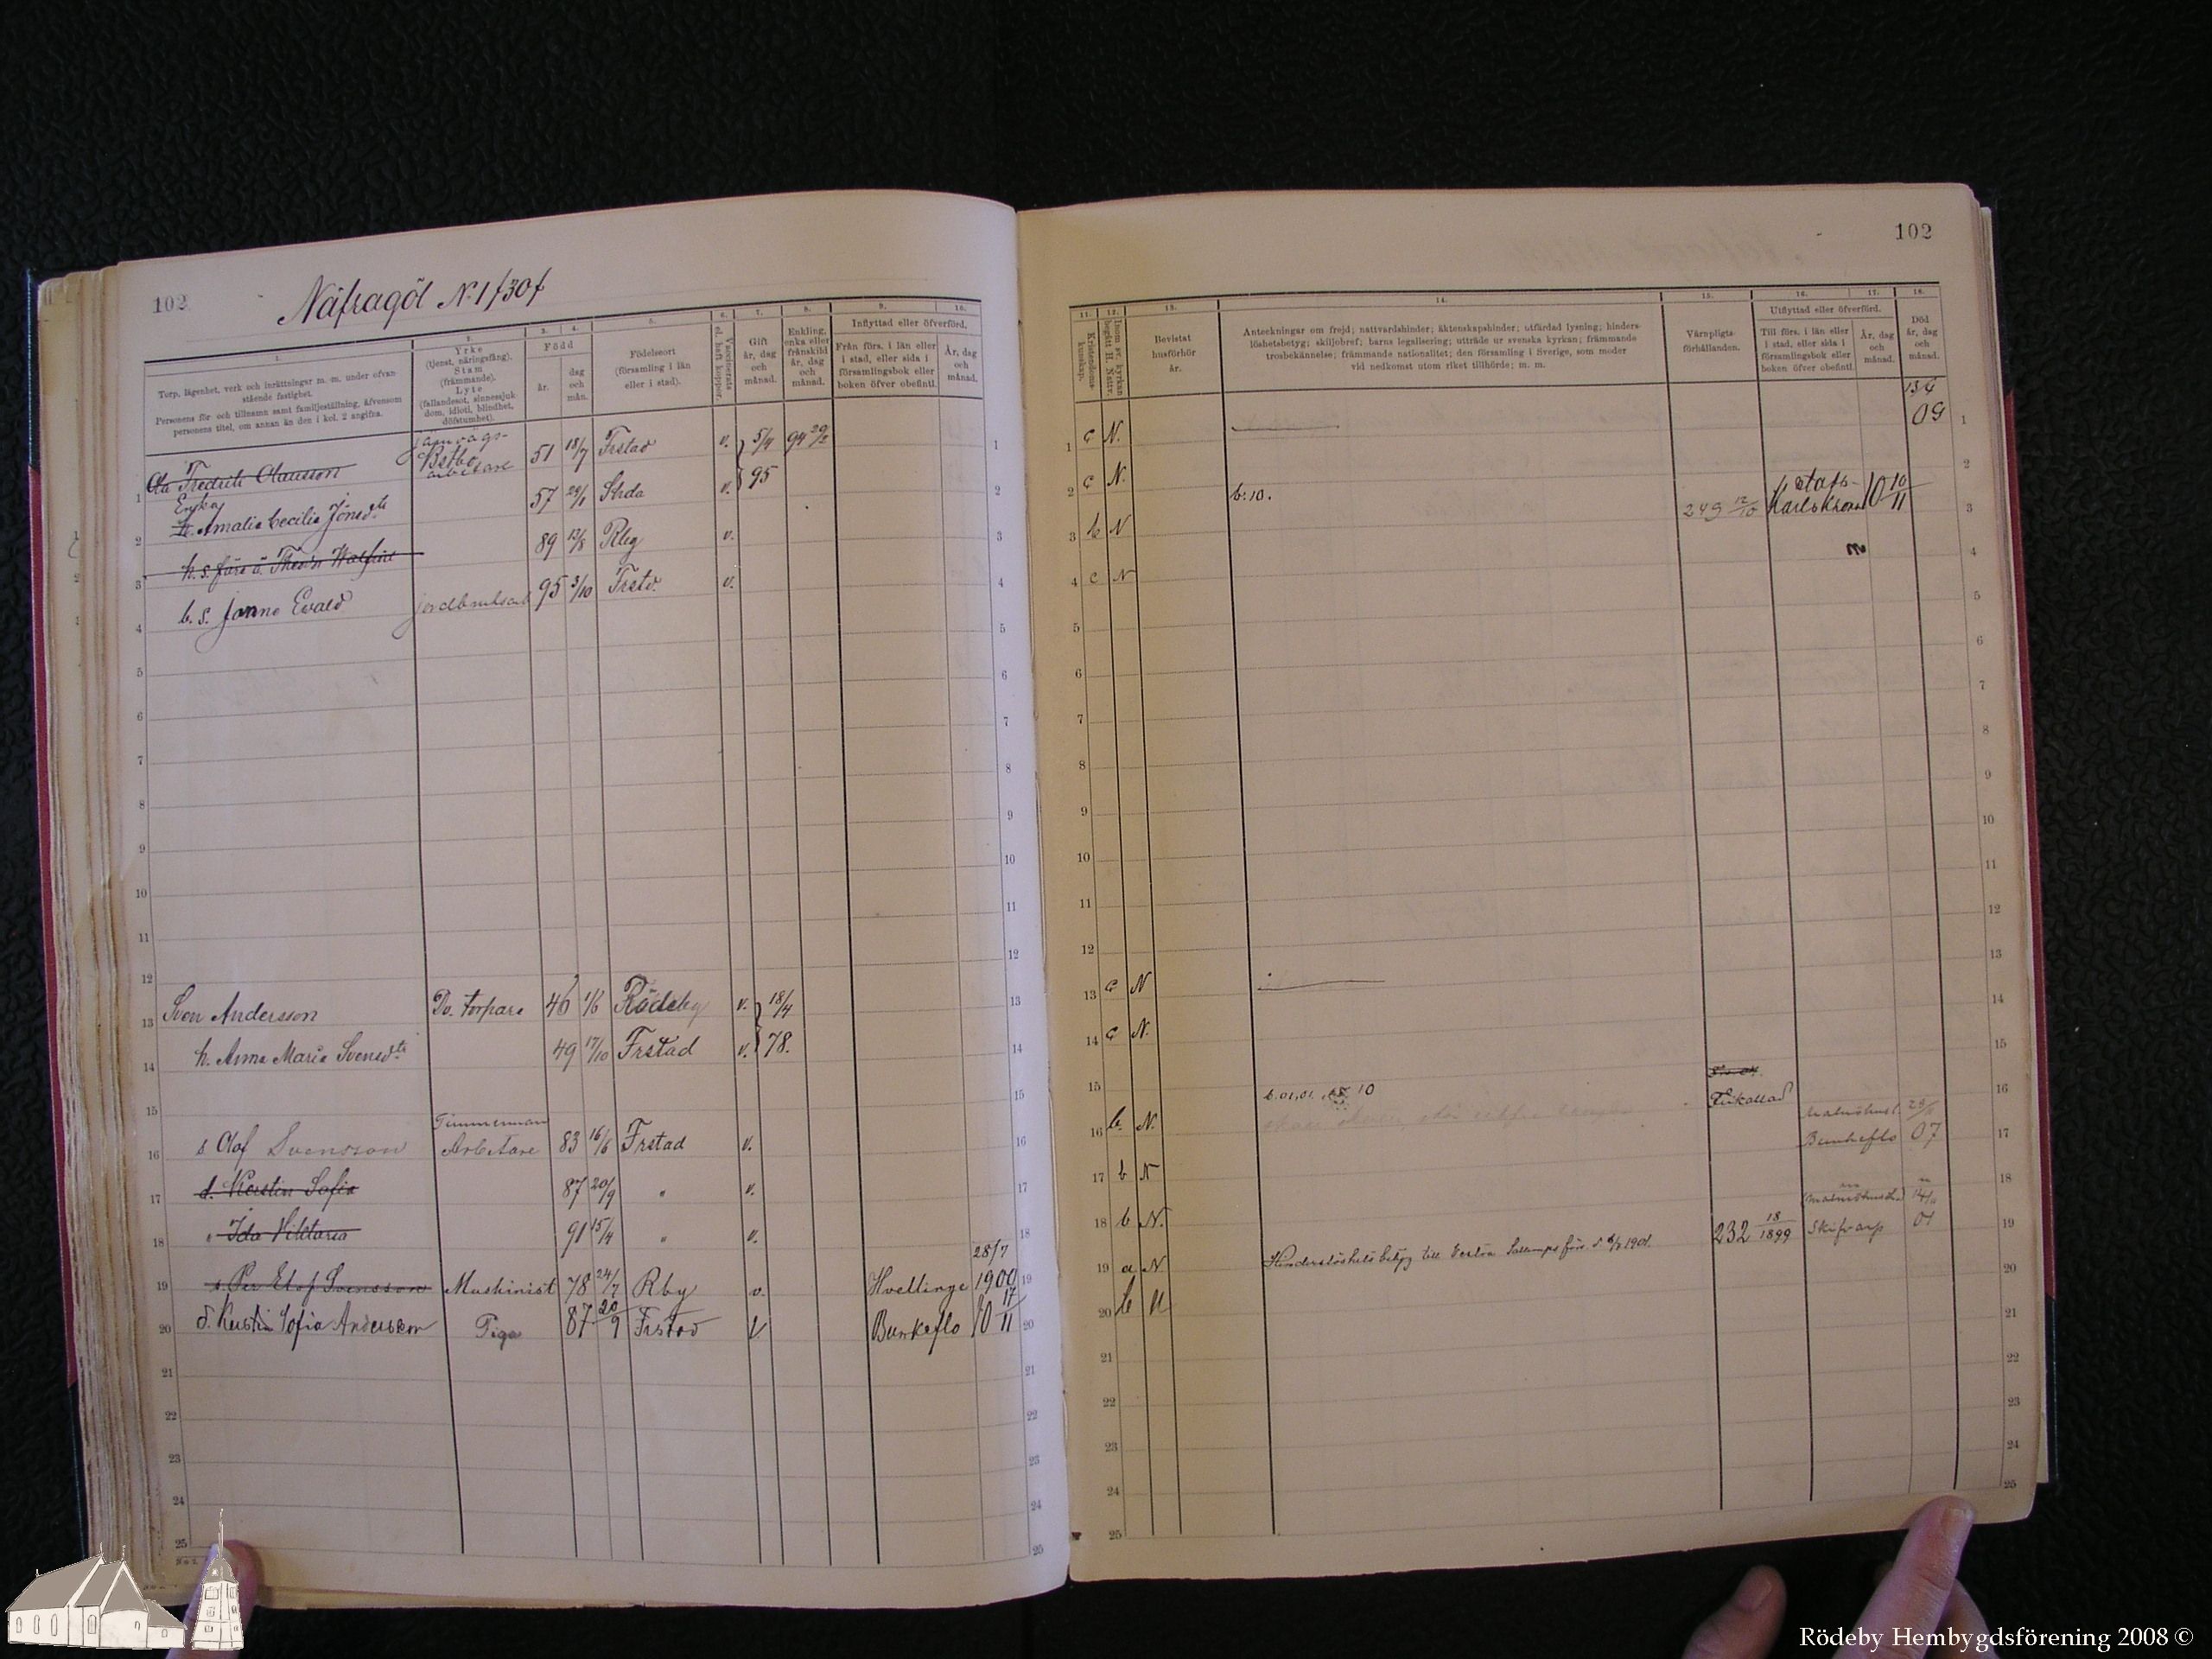 102
Näfragöl N:1 f30f
1.
Torp, lägenhet, verk och inrättningar m. m. under ofvanstående fastighet.
Personens för- och tillnamn samt familjeställning, äfvensom personens titel, om annan än den i kol. 2 angifna.
2.
Yrke
(tjenst, näringsfång).
Stam
(främmande).
Lyte
(fallandesot, sinnessjukdom, idioti, blindhet, döfstumhet).
3. 4.
Född
år.
dag och mån.
5.
Födelseort
(församling i län
eller i stad).
6.
Vaccinerats el. haft koppor.
7.
Gift
år, dag
och
månad.
8.
Enkling,
enka eller
frånskild
år, dag
och
månad.
9. 10.
Inflyttad eller öfverförd.
Från förs. i län eller
i stad, eller sida i
församlingsbok eller
boken öfver obefintl.
År, dag
och
månad.
1 Ola Fredrik Olausson järnvägs- arbetare 51 18/7 Frstad v. 5/4 95 94 29/2
Erika
2 Amalia Cecilia Jönsd:tr 57 v.
3 89 13/8 v.
4 b. s. Janne Evald 95 3/10 Frstd. v.
5
6
7
8
9
10
11
12
13 Sven Andersson Do. torpare 46 1/6 Rödeby v. 18/4
14 h. Anna Maria Svensd:tr 49 17/10 Frstad v. 78.
15
Timmerman
16 s. Olof Svensson Arbetare 83 16/6 Frstad v.
17 d. Kerstin Sofia 87 20/9 " v.
18 " Ida Viktoria 91 15/4 " v.
19 s. Per Elof Svensson Maskinist 78 24/7 Rby v. Hvellinge 28/7 1900
20 d. Kerstin Sofia Andersson Piga 87 20/9 Frstad v. Bunkeflo 10 17/11
21
22
23
24
25
102
11.
Kristendomskunskap.
12.
Inom sv. kyrkan begått H. Nattv.
13.
Bevistat
husförhör
år.
14.
Anteckningar om frejd; nattvardshinder; äktenskapshinder; utfärdad lysning; hinderslöshetsbetyg; skiljobref; barns legalisering; utträde ur svenska kyrkan; främmande trosbekännelse; främmande nationalitet; den församling i Sverige, som moder vid nedkomst utom riket tillhörde; m. m.
15.
Värnpligtsförhållanden.
16. 17.
Utflyttad eller öfverförd.
Till förs. i län eller
i stad, eller sida i
församlingsbok eller
boken öfver obefintl.
År, dag
och
månad.
18.
Död
år, dag
och
månad.
1 c N. 13/6 09
2 c N.
3 b N b. 10. 249 12/10 stads- Karlskrona 10 10/11
4 c N
5
6
7
8
9
10
11
12
13 c N
14 c N.
15
16 b. N. b. 01,01. 10 Frikallad Malmöhusl. Bunkeflo 07
17 b N
18 b N. Skifvarp 01
19 a N Hinderslöshets betyg till Vestra 1901. 232 18/1899
20 b N
21
22
23
24
25
Rödeby Hembygdsförening 2008 ©